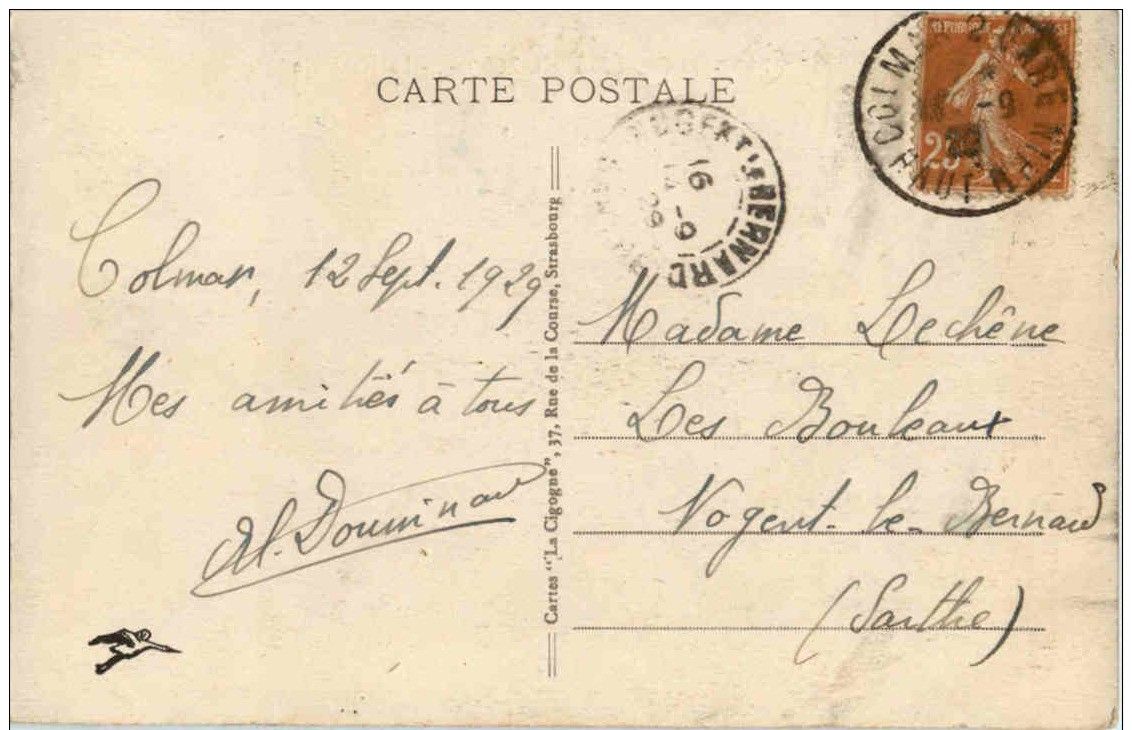 CARTE POSTALE
Colmar, 12 Sept. 1929
Mes amitiés à tous
Cartes "La Cigogne", 37, Rue de la Course, Strasbourg
16 -9
29
BERNARD
COLMAR GARE
-9
HAUT RHIN
25
Madame Lechêne
Les Bouleaux
Nogent-le-Bernard
(Sarthe)